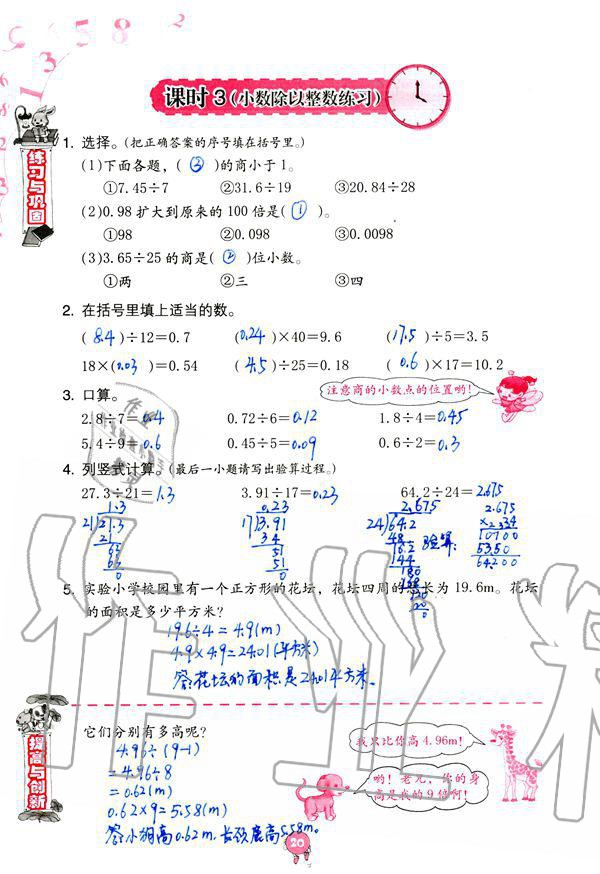 课时3(小数除以整数练习)
练习与巩固
1. 选择。(把正确答案的序号填在括号里。)
(1)下面各题,( ③ )的商小于1。
①7.45÷7 ②31.6÷19 ③20.84÷28
(2)0.98扩大到原来的100倍是( ① )。
①98 ②0.098 ③0.0098
(3)3.65÷25的商是( ② )位小数。
①两 ②三 ③四
2. 在括号里填上适当的数。
( 8.4 )÷12=0.7 ( 0.24 )×40=9.6 ( 17.5 )÷5=3.5
18×( 0.03 )=0.54 ( 4.5 )÷25=0.18 ( 0.6 )×17=10.2
注意商的小数点的位置哟!
3. 口算。
2.8÷7=0.4 0.72÷6=0.12 1.8÷4=0.45
5.4÷9=0.6 0.45÷5=0.09 0.6÷2=0.3
4. 列竖式计算。(最后一小题请写出验算过程。)
27.3÷21=1.3 3.91÷17=0.23 64.2÷24=2.675
1.3 0.23 2.675 2.675
17 3.91 24 64.2
34 48 10700
51 16.2 验算: 5350
51 144 64.200
0 180
5. 实验小学校园里有一个正方形的花坛,花坛四周的总长为19.6m。花坛
的面积是多少平方米?
19.6÷4=4.9(m)
4.9×4.9=24.01(平方米)
答:花坛的面积是24.01平方米.
提高与创新
它们分别有多高呢?
我只比你高4.96m!
哟!老兄,你的身
高是我的9倍啊!
4.96÷(9-1)
=4.96÷8
=0.62(m)
0.62×9=5.58(m)
答:小狗高0.62m,长颈鹿高5.58m。
20
作业